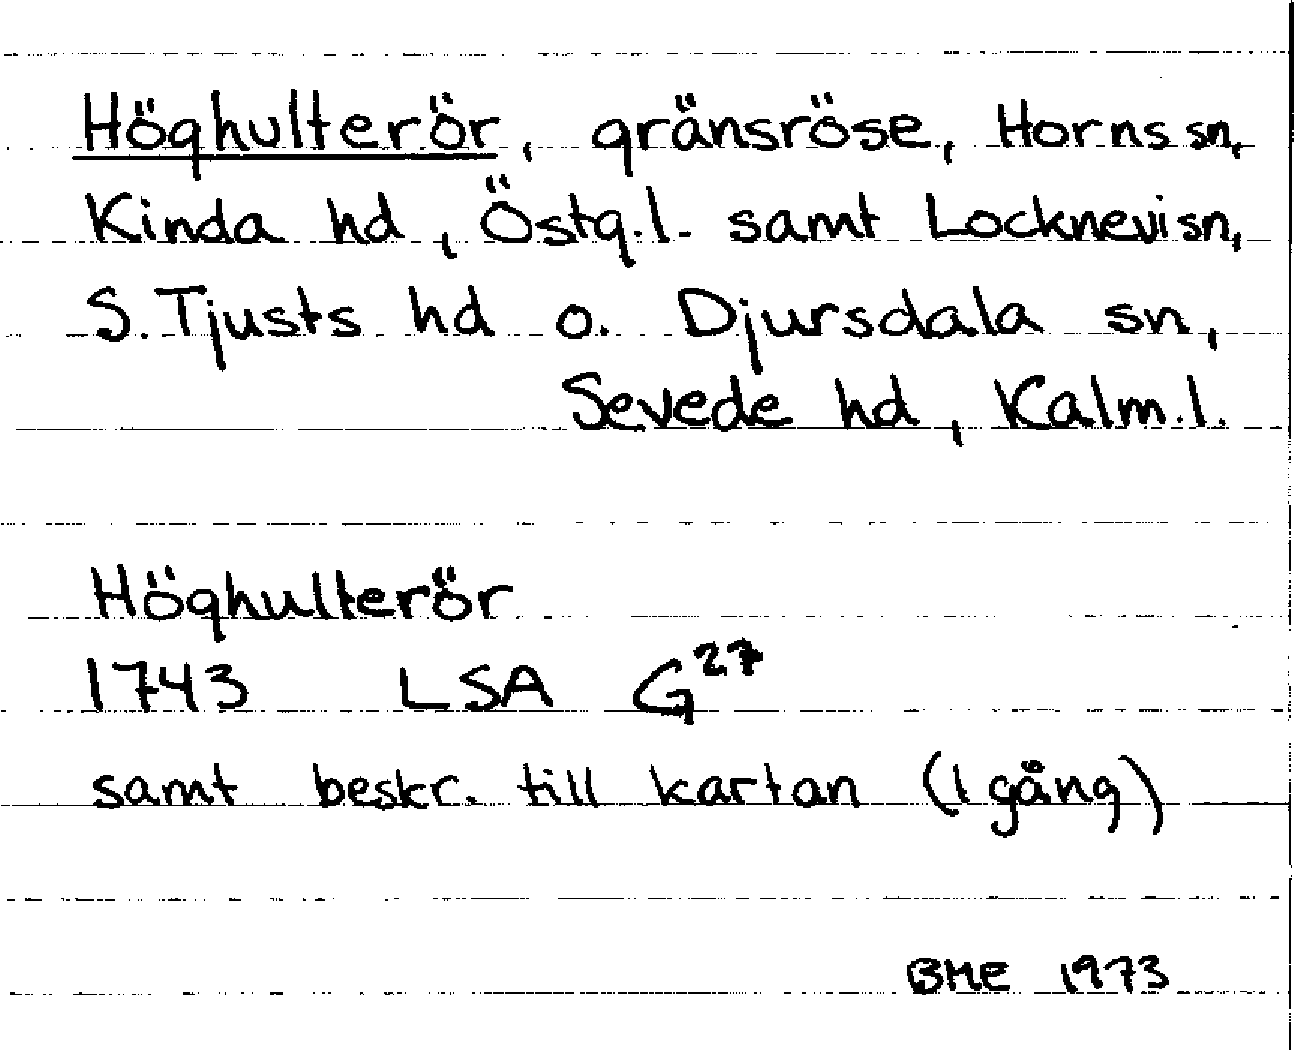 Höghulterör, gränsröse, Horns sn,
Kinda hd, Östg.l. samt Locknevi sn,
S. Tjusts hd o. Djursdala sn,
Sevede hd, Kalm.l.
Höghulterör
1743 LSA G27
samt beskr. till kartan (1 gång)
BME 1973